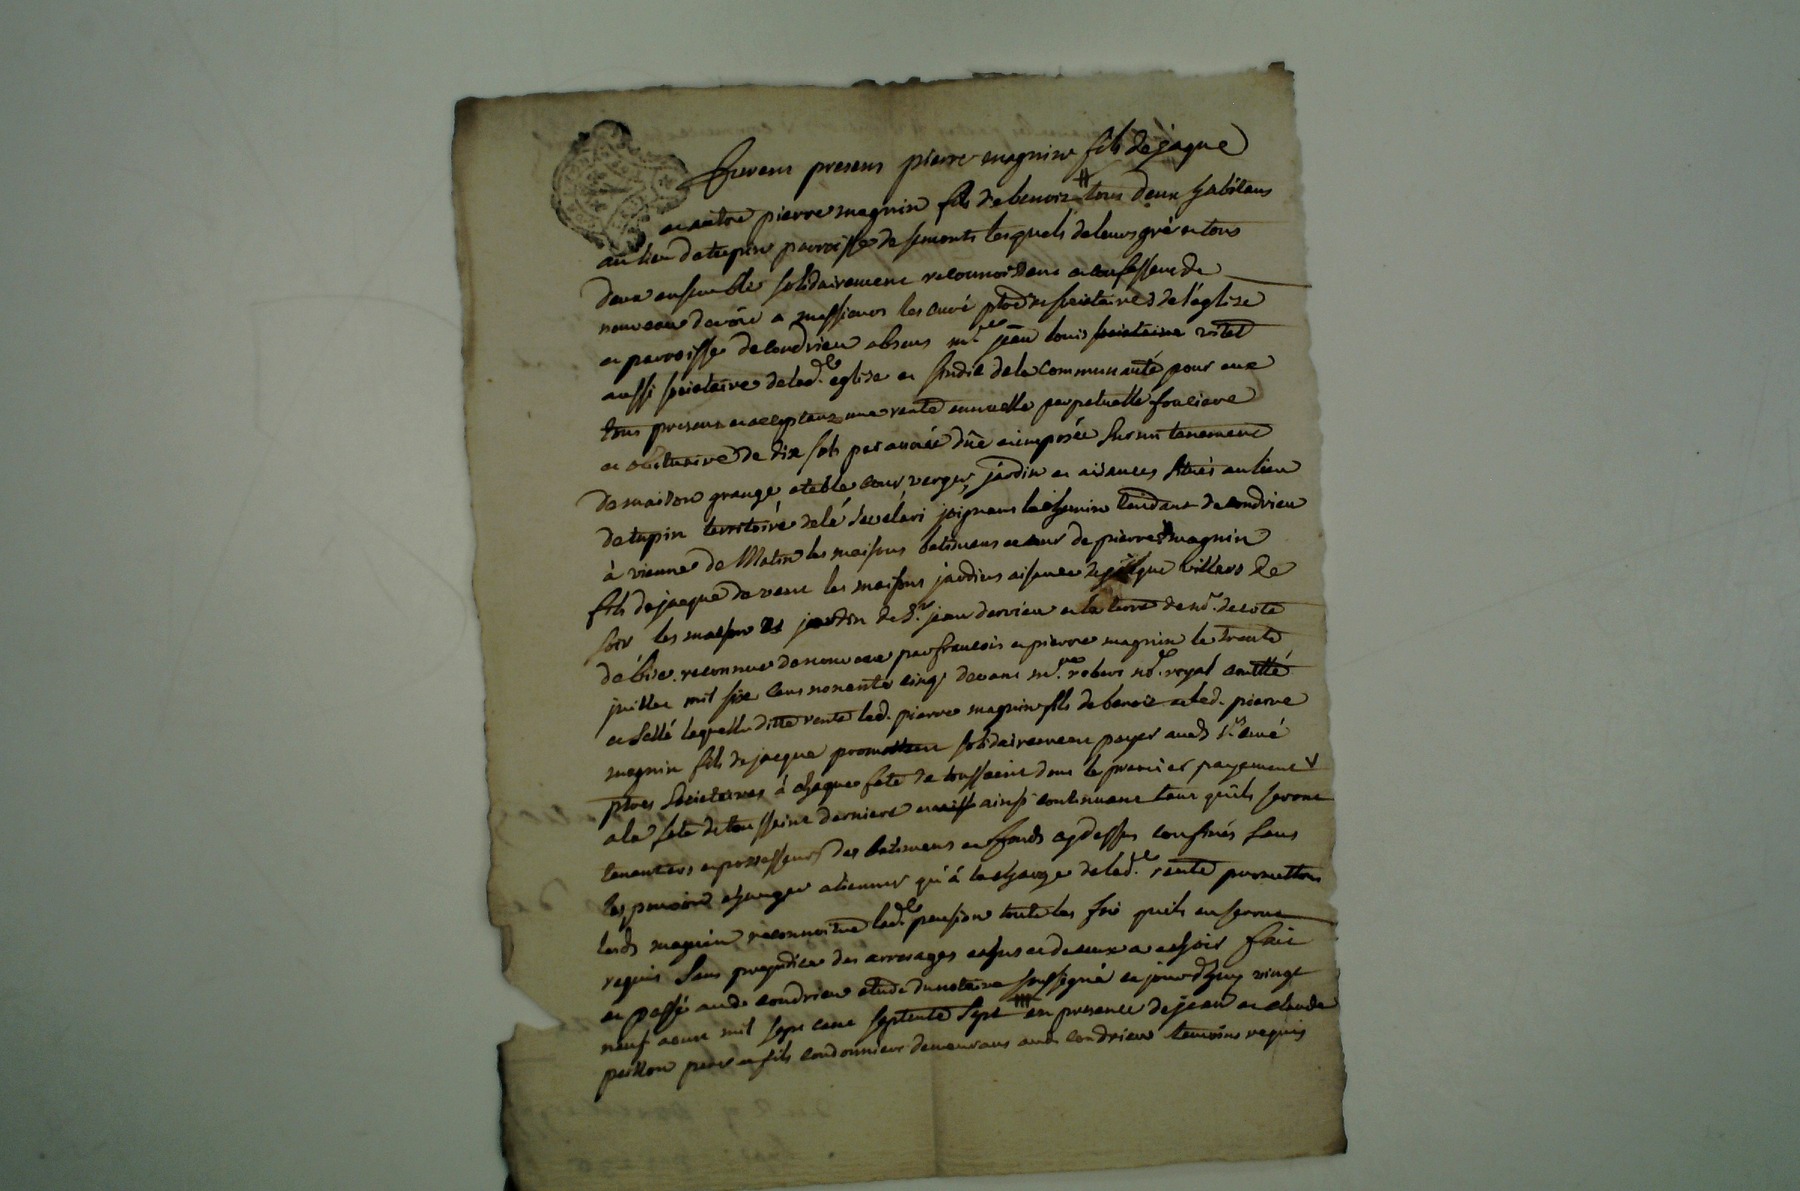 furent presens pierre magnin fils de jaque
et autre pierre magnin fils de benoit # tous deux habitans
au lieu de tupin parroisse de semonts lesquels de leurs gré et tous
deux ensemble solidairement reconnoissent et confessent de
nouveau devoir a messieurs les curé ptres societaires de l'église
et parroisse de condrieu absens mre jean louis vitel
aussi societaire de lade eglise et sindic de la communauté pour eux
tous present et acceptant une rente annuelle perpetuelle fonciere
et obituaire de dix sols par année düe et imposée sur un tenement
de maison grange etable cour verger jardin et aisances situés au lieu
de tupin territoire de joignant le chemin tendant de condrieu
à vienne de Matin les maisons batimens et cour de pierre magnin
fils de jacque de vent les maisons jardins aisances de villard de
soir les maison et jardin de sr jean dervieu et la terre de
de bise reconnue de nouveau par francois et pierre magnin le trente
juillet mil six cens nonante cinq devant mre robert nore royal contllé
et sellé laquelle ditte rente led. pierre magnin fils de benoit et led. pierre
magnin fils de jacque promettent solidairement payer auxds srs curé
ptres societaires à chaque fete de toussaint dont le premier payement
a la fete de toussaint derniere ainsi continuant tant qu'ils seront
tenantiers et possesseurs des batimens et fonds cy dessus confinés sans
les pouvoir changer alienner qu'à la charge de lade rente promettans
lesds magnin reconnoitre lade pension toute les fois quils en seront
requis sans prejudice des arrerages echus et de ceux a echoir fait
et passé aud. condrieu etude du notaire soussigné ce jourdhuy vingt
neuf aout mil sept cent septente sept en presence de jean et claude
peillon pere et fils cordonniers demeurans aud. condrieu temoins requis